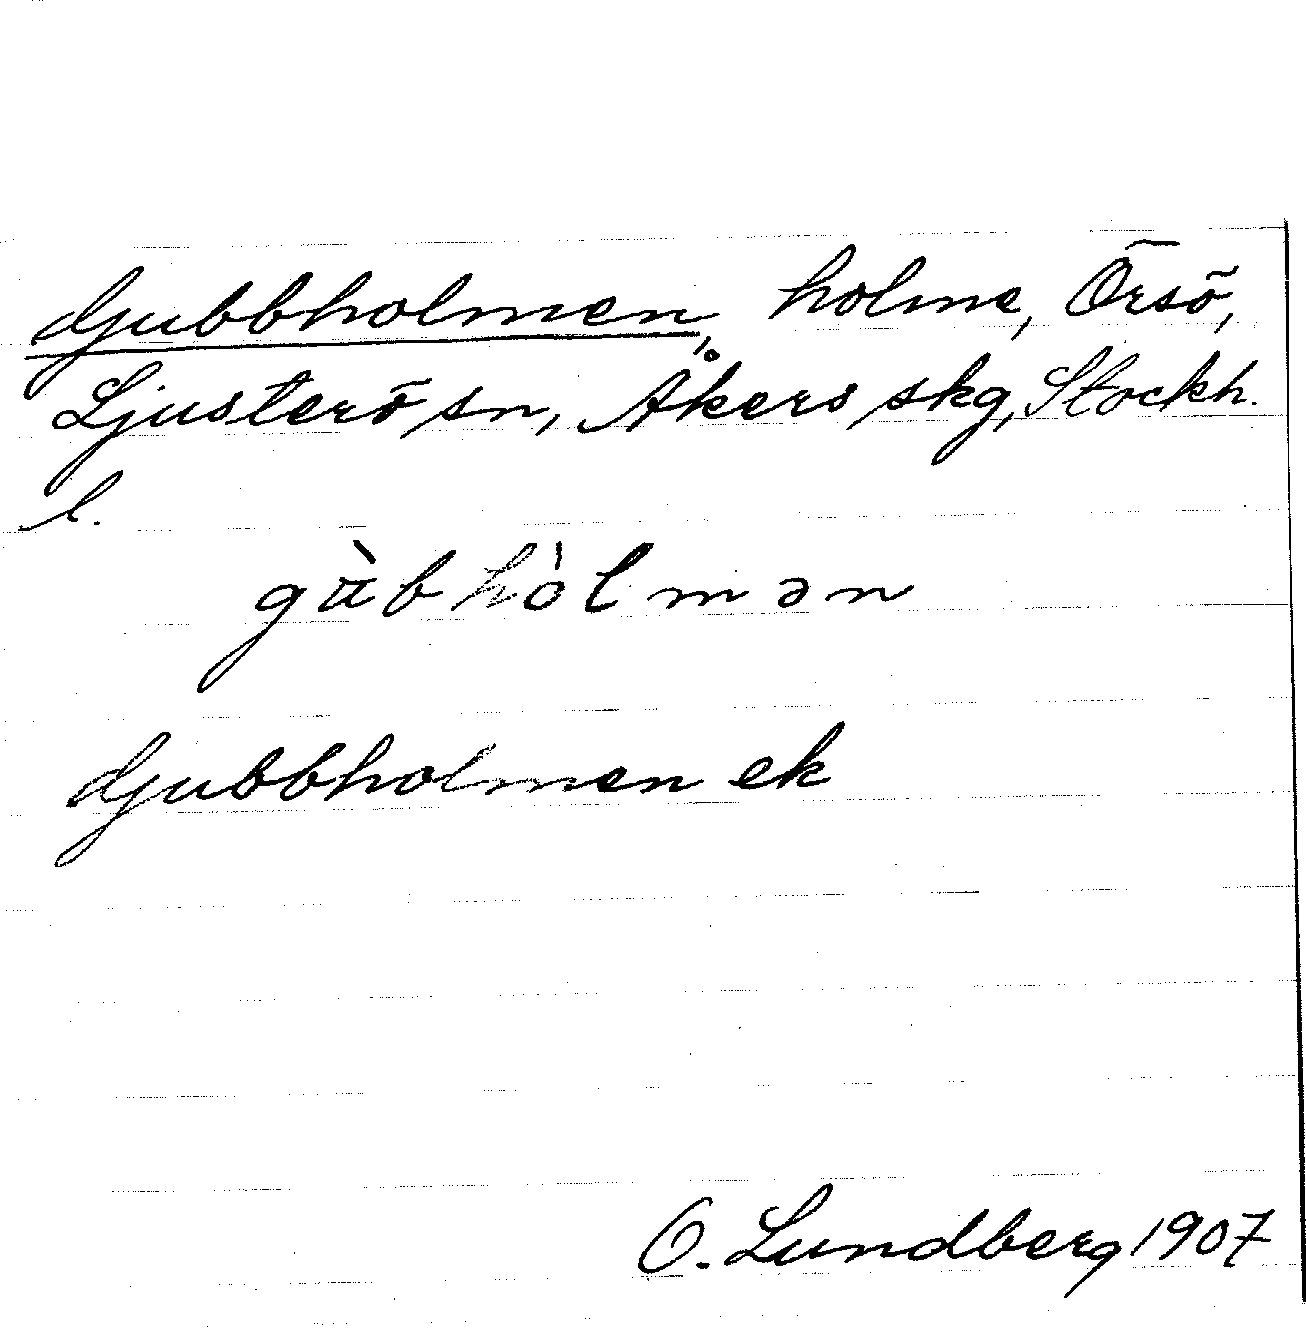 djubbholmen, holme, Örsö,
Ljusterö sn, Åkers skg, Stockh.
l.
gùbhòlmən
djubbholmen ek
O. Lundberg 1907